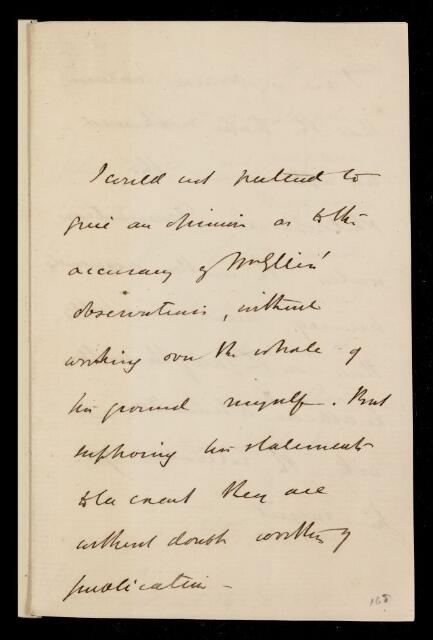 I could not pretend to
give an opinion as to the
accuracy of Mr Ellis'
observations, without
working over the whole of
his ground myself. But
supposing his statements
to be exact they are
without doubt worthy of
publication –
168